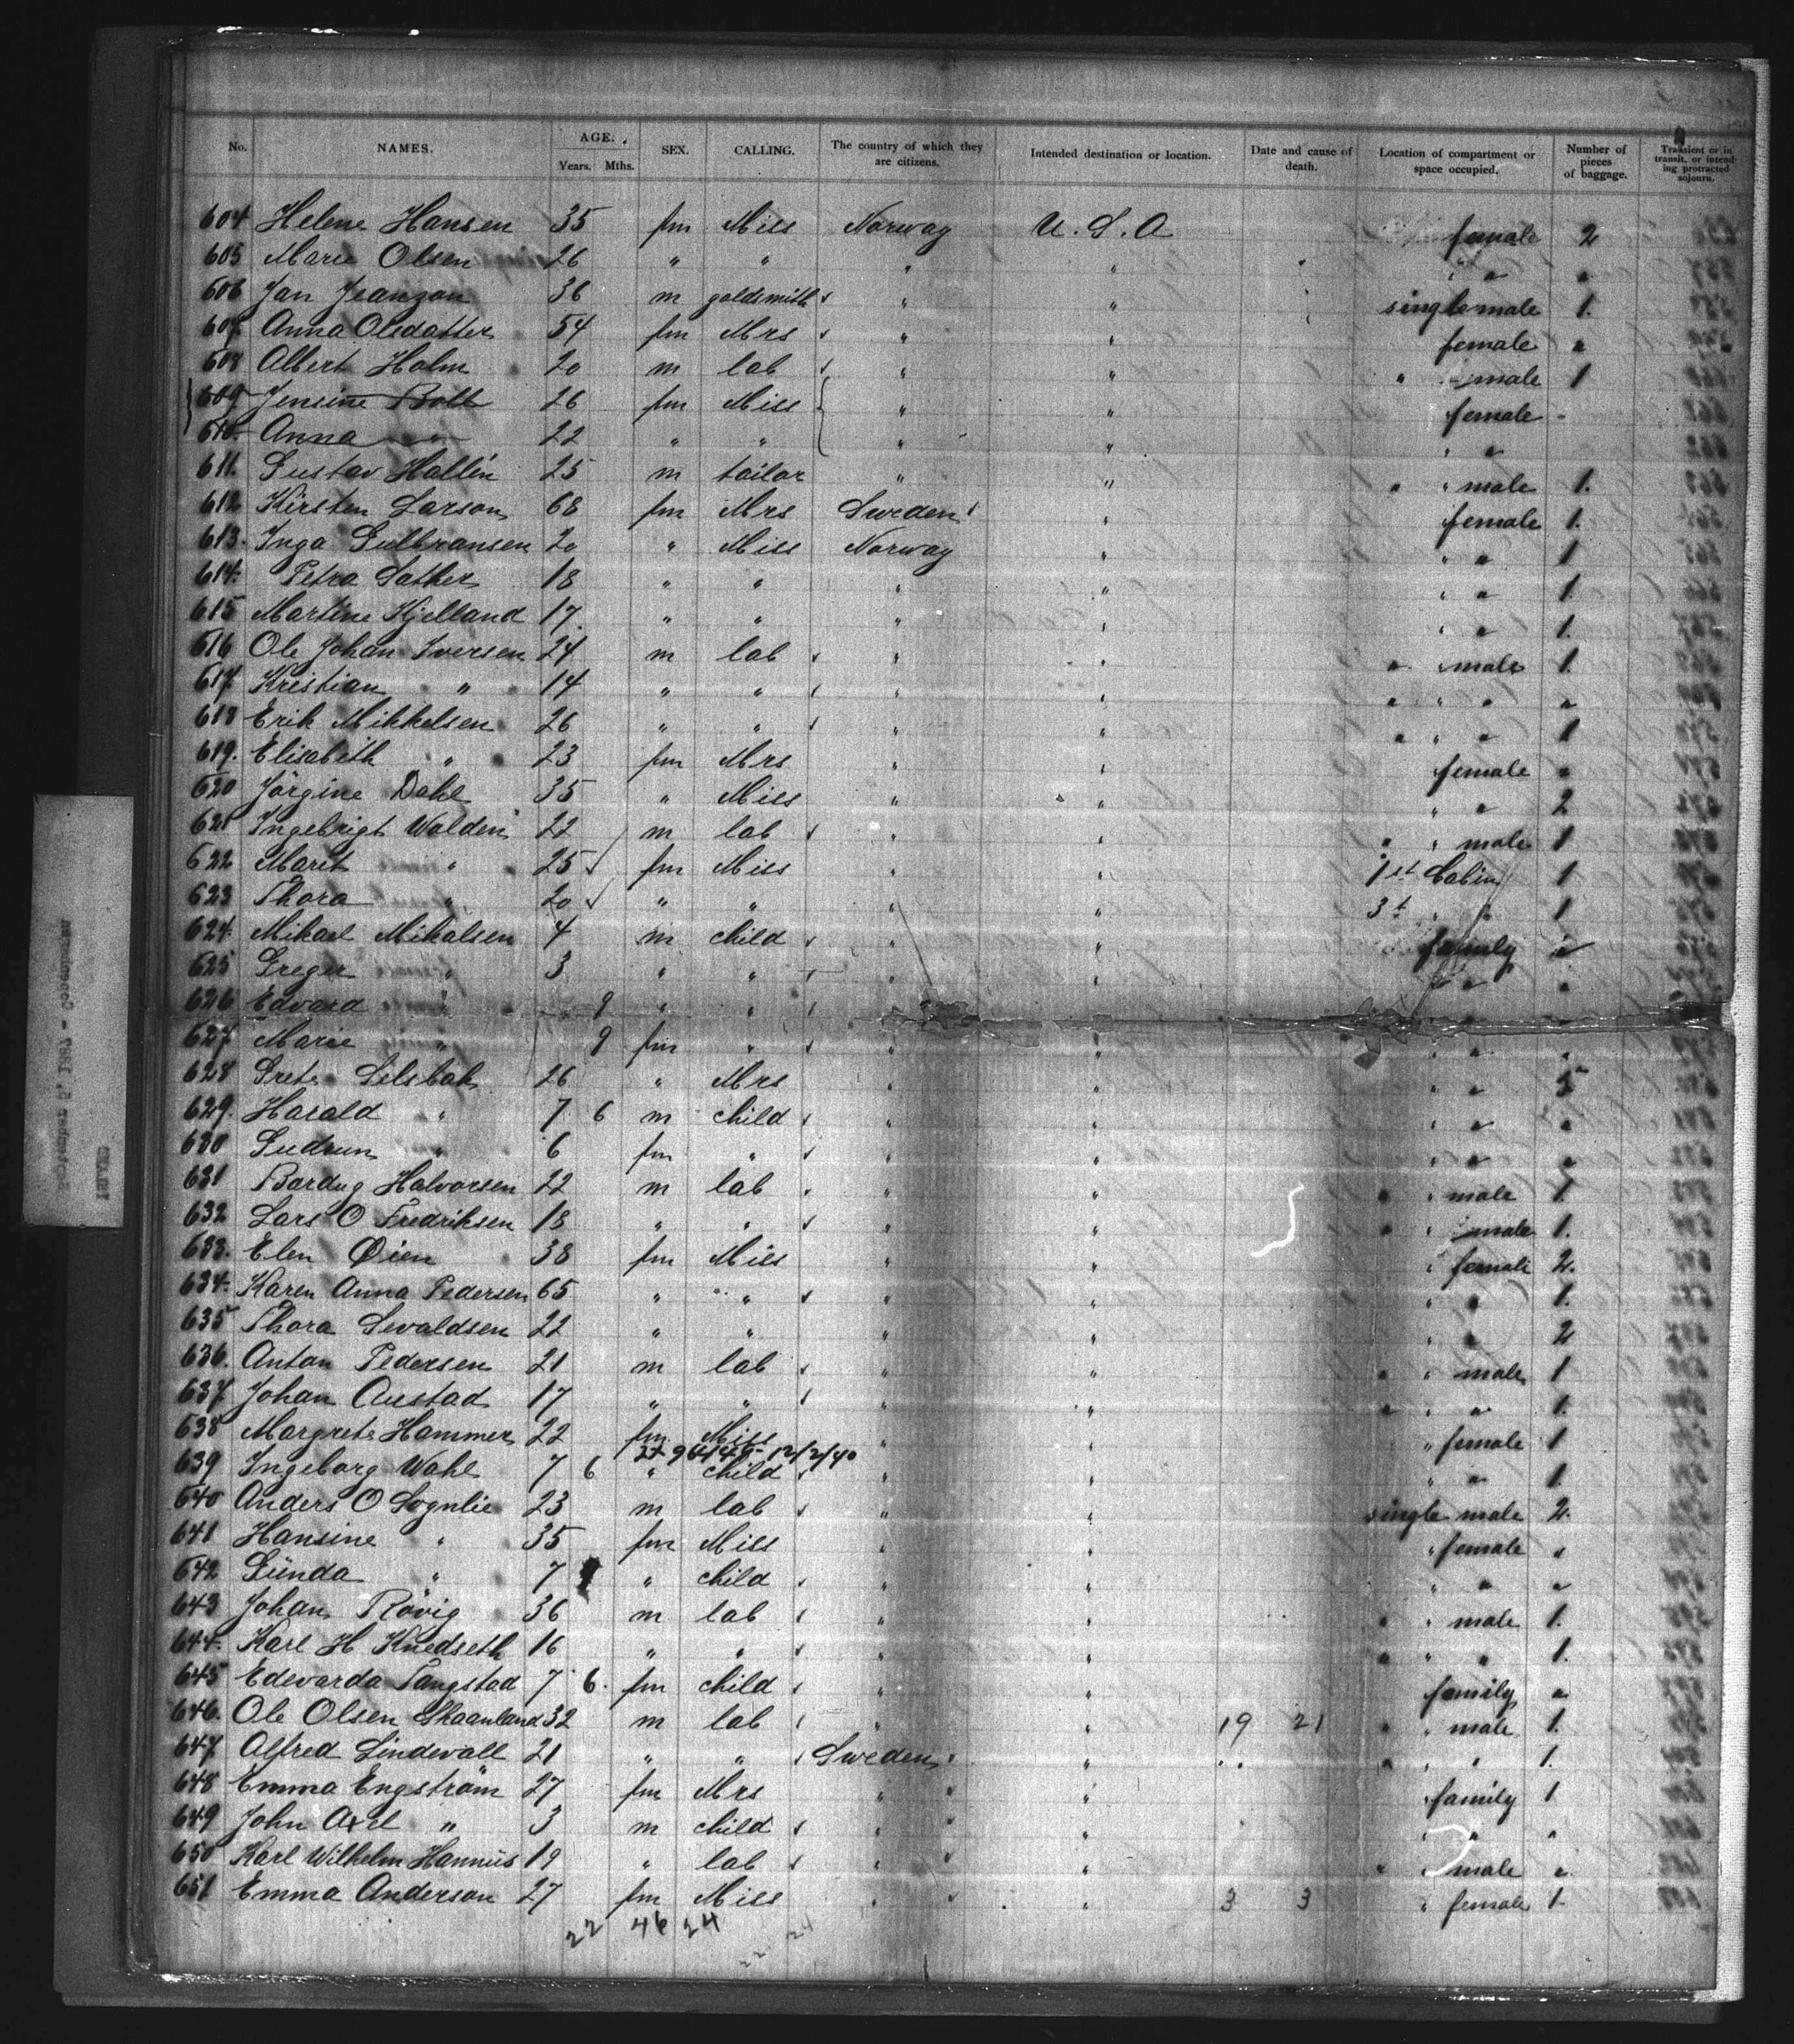 No. NAMES. AGE. Years. Mths. SEX. CALLING. The country of which they are citizens. Intended destination or location. Date and cause of death. Location of compartment or space occupied. Number of pieces of baggage. Transient or in transit, or intending protracted sojourn.
604 Helene Hansen 35 fm Miss Norway U.S.A female 2
605 Marie Olsen 26 " " " " " " "
606 Jan Jeanzon 36 m goldsmith " " single male 1.
607. Anna Olsdatter 54 fm Mrs " " female "
608 Albert Holm 20 m lab " " " male 1
609 Jensine Boll 26 fm Miss " " female -
610. Anna " 22 " " " " " "
611. Gustav Hallin 25 m tailor " " " " male 1.
612 Kirsten Larson 68 fm Mrs Sweden " female 1.
613. Inga Gulbransen 20 " Miss Norway " " " 1
614. Petra Sather 18 " " " " " " 1.
615 Martine Kjelland 17. " " " " " " 1.
616 Ole Johan Iversen 24 m lab " " " " male 1.
617. Kristian " 14 " " " " " " " "
618 Erik Mikkelsen 26 " " " " " " " 1
619. Elisabeth " 23 fm Mrs " " female "
620 Jörgine Dahl 35 " Miss " " " " 2
621 Ingebrigt Walden 22 m lab " " " " male 1
622 Marit " 25 fm Miss " " 1st Cabin 1
623 Thora " 20 " " " " 3d " " 1
624. Mikael Mikalsen 4 m child " " family "
625 Greger " 3 " " " " " " "
626 Edvard " 9 " " " "
627 Marie " 9 fm " " " " " "
628 Grete Selsbak 26 " Mrs " " " "
629. Harald " 7 6 m child " " " " "
630 Gudrun " 6 fm " " " " " "
631 Bardug Halvorsen 22 m lab " " " " male 1.
632 Lars O Fredriksen 18 " " " " " " male 1.
633. Elen Øien 38 fm Miss " " " female 2.
634. Karen Anna Pedersen 65 " " " " " " 1.
635 Thora Sevaldsen 22 " " " " " " 2
636. Anton Pedersen 21 m lab " " " " male 1
637. Johan Austad 17 " " " " " " " 1.
638 Margrete Hammer 22 fm Miss " " " female 1
12/2/40
639 Ingeborg Wahl 7 6 " child " " " " 1.
640 Anders O Sognlie 23 m lab " " single male 2.
641 Hansine " 35 fm Miss " " " female "
642 Gunda " 7 " child " " " " "
643 Johan Rövig 36 m lab " " " " male 1.
644. Karl H Knedseth 16 " " " " " " " 1.
645 Edevarda Tangstad 7 6. fm child " " family "
646. Ole Olsen Skaanland 32 m lab " " 19 21 " " male 1.
647. Alfred Lindevall 21 " " Sweden " " " " 1.
648 Emma Engström 27 fm Mrs " " " family 1
649 John Axel " 3 m child " " " " "
650 Karl Wilhelm Hannius 19 " lab " " " " male "
651 Emma Anderson 27 fm Miss " " 3 3 " female 1
22 46 24
24